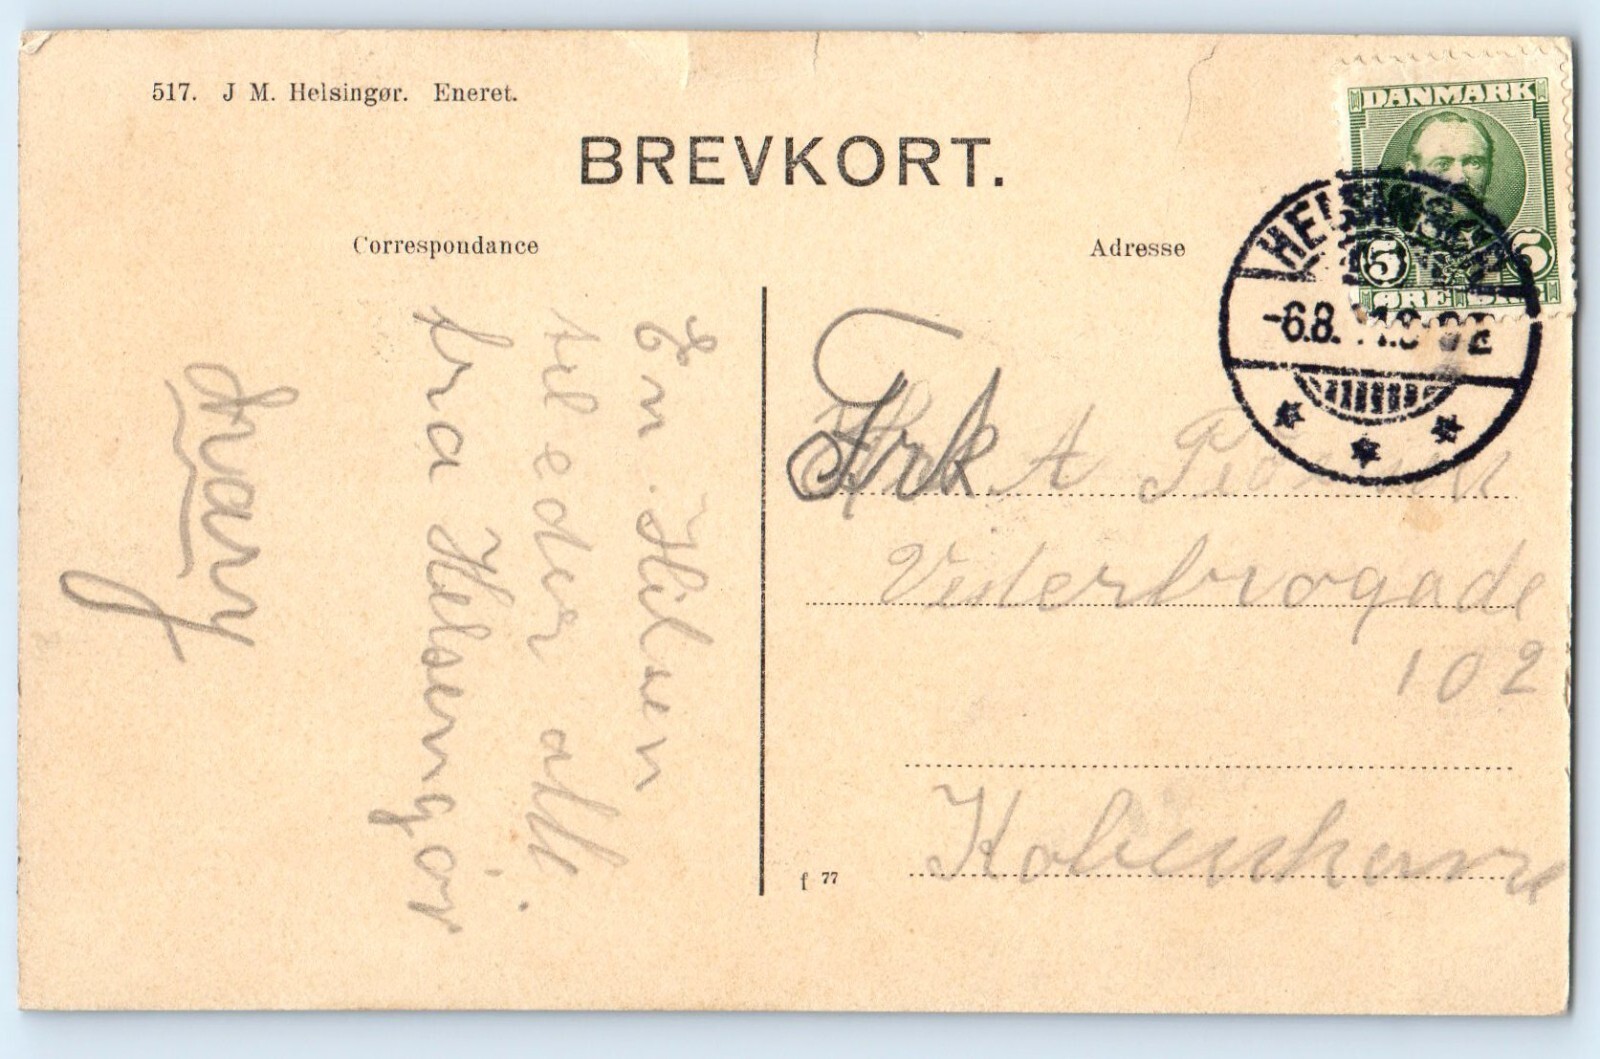 517. J M. Helsingør. Eneret.
BREVKORT.
Correspondance
Adresse
DANMARK
5 5
ØRE
HELSINGØR
-6.8.
En Hilsen
til eder alle
fra Helsengør
Mary
Frk A
Vesterbrogade
102
Kobenhavn
f 77